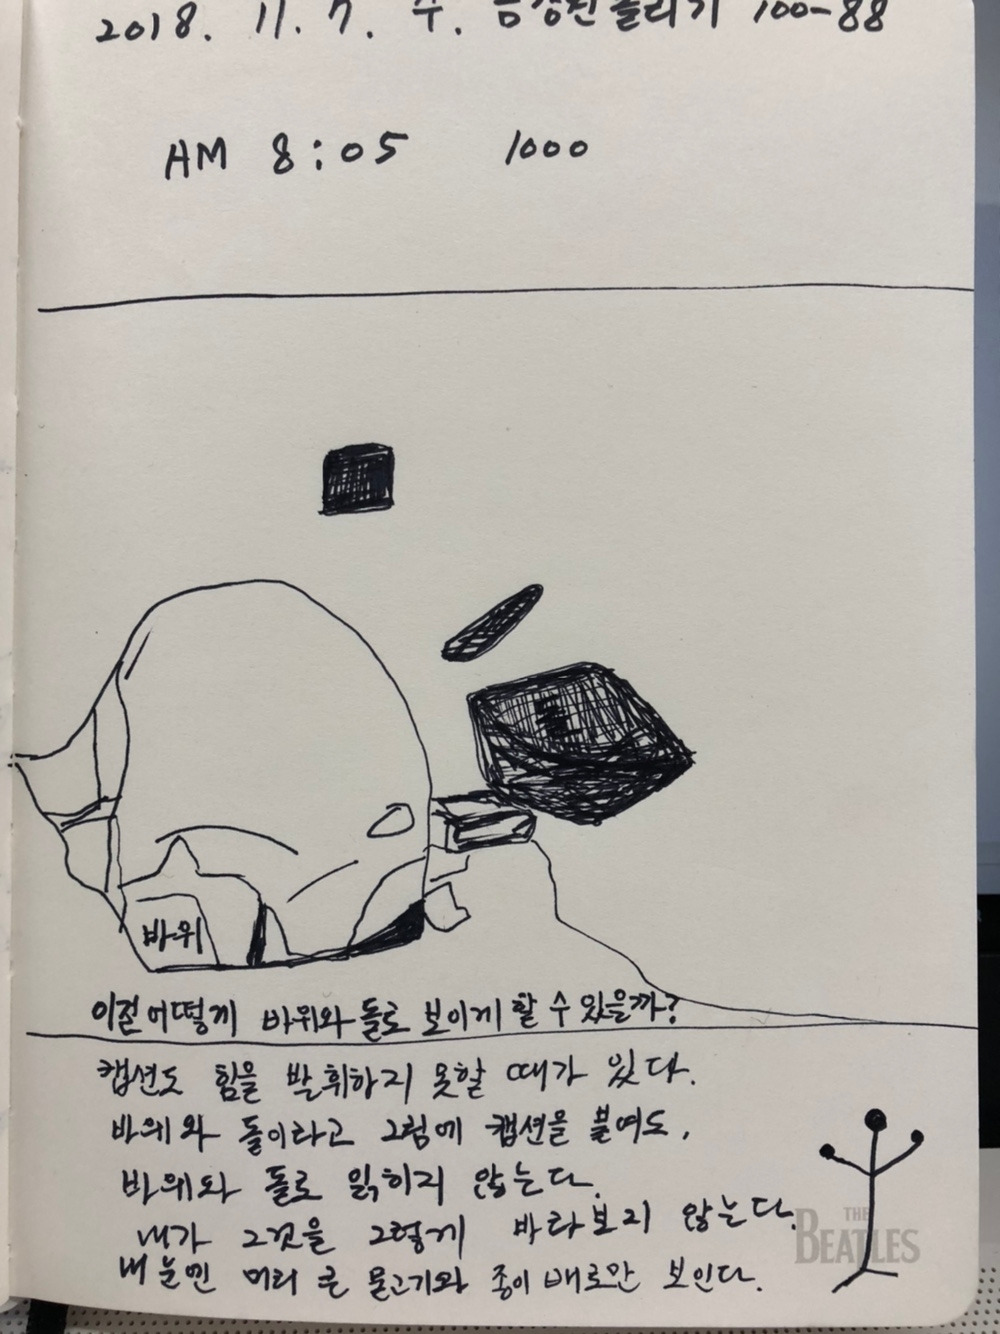 2018. 11. 7. 수. 금강전 놀리기 100-88
AM 8:05 1000
바위
이걸 어떻게 바위와 돌로 보이게 할 수 있을까?
캡션도 힘을 발휘하지 못할 때가 있다.
바위와 돌이라고 그림에 캡션을 붙여도,
바위와 돌로 읽히지 않는다.
내가 그것을 그렇게 바라보지 않는다.
내 눈엔 머리 큰 물고기와 종이 배로만 보인다.
THE
BEATLES